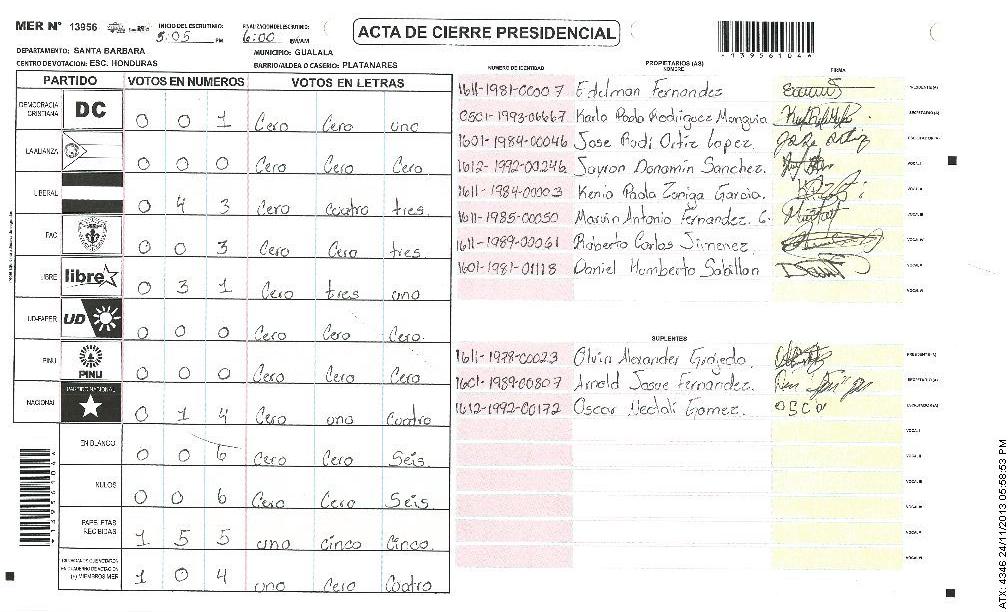 MER N° 13956 INICIO DEL ESCRUTINIO: 5:05 PM FINALIZACION DEL ESCRUTINIO: 6:00 PM/AM
ACTA DE CIERRE PRESIDENCIAL
139561044
DEPARTAMENTO: SANTA BARBARA MUNICIPIO: GUALALA
CENTRO DE VOTACION: ESC. HONDURAS BARRIO/ALDEA O CASERIO: PLATANARES
PARTIDO VOTOS EN NUMEROS VOTOS EN LETRAS
DEMOCRACIA CRISTIANA DC 0 0 1 Cero Cero uno
LA ALIANZA 0 0 0 Cero Cero Cero
LIBERAL 0 4 3 Cero cuatro tres.
PAC 0 0 3 Cero Cero tres.
LIBRE libre 0 3 1 Cero tres uno
UD-FAPER UD 0 0 0 Cero Cero Cero.
PINU PINU 0 0 0 Cero Cero Cero
NACIONAL PARTIDO NACIONAL 0 1 4 Cero uno Cuatro
EN BLANCO 0 0 6 Cero Cero Seis.
NULOS 0 0 6 Cero Cero Seis
PAPELETAS RECIBIDAS 1 5 5 uno cinco Cinco.
CIUDADANOS QUE VOTARON EN CUADERNO DE VOTACION (+) MIEMBROS MER 1 0 4 uno Cero Cuatro
139561044
PROPIETARIOS (AS)
NUMERO DE IDENTIDAD NOMBRE FIRMA
1611-1981-00007 Edelman Fernandez PRESIDENTE (A)
0501-1993-06667 Karla Paola Rodriguez Munguia SECRETARIO (A)
1601-1984-00046 Jose Rudi Ortiz Lopez. ESCRUTADOR (A)
1612-1992-00246 Jayron Donamin Sanchez. VOCAL I
1611-1984-00003 Kenia Paola Zuniga Garcia. VOCAL II
1611-1985-00050 Marvin Antonio Fernandez. G. VOCAL III
1611-1989-00061 Roberto Carlos Jimenez. VOCAL IV
1601-1981-01118 Daniel Humberto Sabillon VOCAL V
VOCAL VI
SUPLENTES
1611-1978-00023 Olvin Alexander Grajeda PRESIDENTE (A)
1601-1989-00807 Arnold Josue Fernandez. SECRETARIO (A)
1612-1992-00172 Oscar Neftali Gomez. OSCAR ESCRUTADOR (A)
VOCAL I
VOCAL II
VOCAL III
VOCAL IV
VOCAL V
VOCAL VI
ATX: 4346 24/11/2013 05:58:53 PM